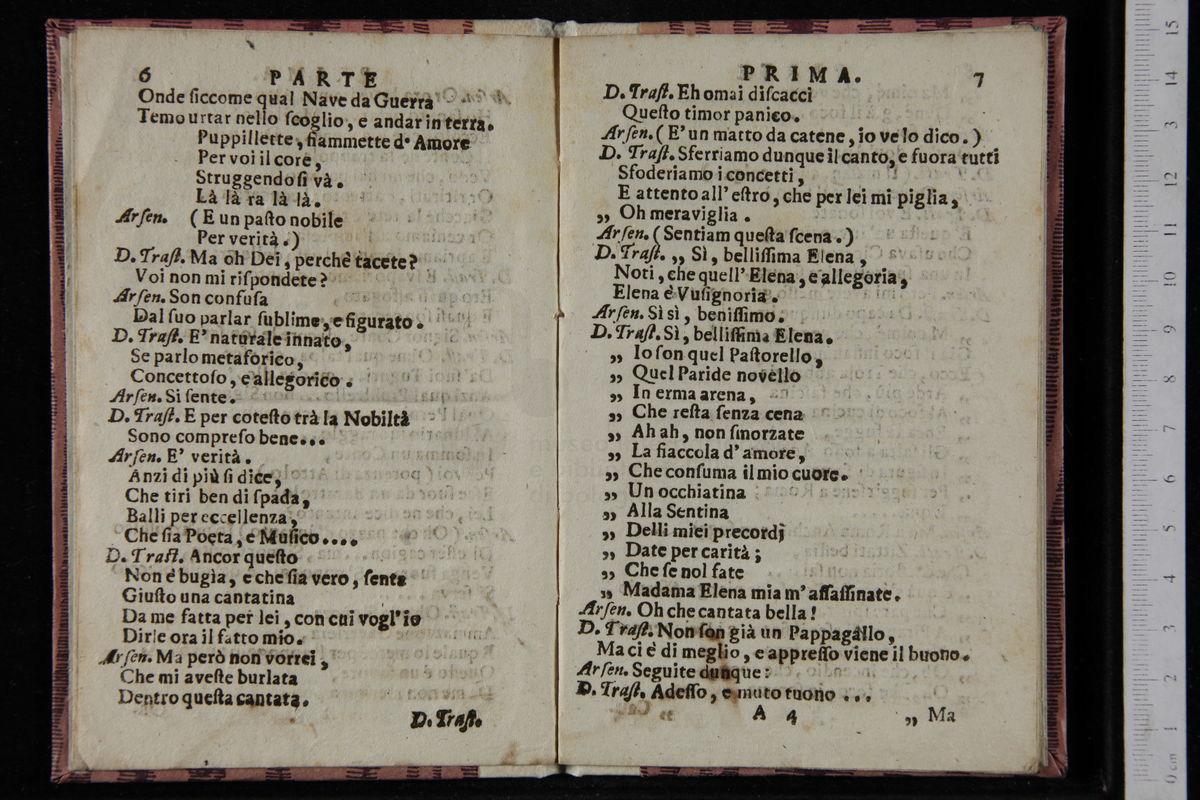 6 PARTE
Onde ſiccome qual Nave da Guerra
Temo urtar nello ſcoglio, e andar in terra.
Puppillette, fiammette d'Amore
Per voi il core,
Struggendoſi và.
Là là ra là là.
Arſen. (E un paſto nobile
Per verità.)
D. Traſt. Ma oh Dei, perchè tacete?
Voi non mi riſpondete?
Arſen. Son confuſa
Dal ſuo parlar ſublime, e figurato.
D. Traſt. E' naturale innato,
Se parlo metaforico,
Concettoſo, e allegorico.
Arſen. Si ſente.
D. Traſt. E per coteſto trà la Nobiltà
Sono compreſo bene...
Arſen. E' verità.
Anzi di più ſi dice,
Che tiri ben di ſpada,
Balli per eccellenza,
Che ſia Poeta, e Muſico....
D. Traſt. Ancor queſto
Non è bugìa, e che ſia vero, ſenta
Giuſto una cantatina
Da me fatta per lei, con cui vogl'io
Dirle ora il fatto mio.
Arſen. Ma però non vorrei,
Che mi aveſte burlata
Dentro queſta cantata.
D. Traſt.
PRIMA. 7
D. Traſt. Eh omai diſcacci
Queſto timor panico.
Arſen. (E' un matto da catene, io ve lo dico.)
D. Traſt. Sferriamo dunque il canto, e fuora tutti
Sfoderiamo i concetti,
E attento all' eſtro, che per lei mi piglia,
„ Oh meraviglia.
Arſen. (Sentiam queſta ſcena.)
D. Traſt. „ Sì, belliſſima Elena,
Noti, che quell' Elena, e allegoria,
Elena è Vuſignoria.
Arſen. Sì sì, beniſſimo.
D. Traſt. Sì, belliſſima Elena.
„ Io ſon quel Paſtorello,
„ Quel Paride novello
„ In erma arena,
„ Che reſta ſenza cena
„ Ah ah, non ſmorzate
„ La fiaccola d' amore,
„ Che conſuma il mio cuore.
„ Un occhiatina
„ Alla Sentina
„ Delli miei precordj
„ Date per carità;
„ Che ſe nol fate
„ Madama Elena mia m' aſſaſſinate.
Arſen. Oh che cantata bella!
D. Traſt. Non ſon già un Pappagallo,
Ma ci è di meglio, e appreſſo viene il buono.
Arſen. Seguite dunque:
D. Traſt. Adeſſo, e muto tuono ...
A 4 „ Ma